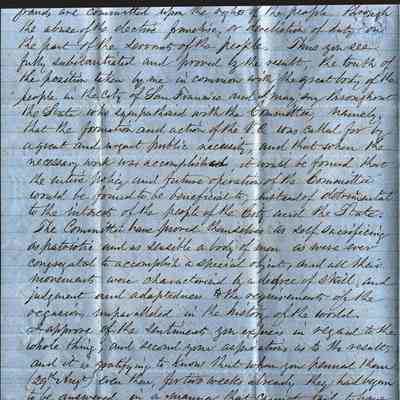 frauds are committed upon the rights of the people through
the abuse of the elective franchise, or dereliction of duty on
the part of the servants of the people. Thus you see
fully substantiated and proved by the result, the truth of
the position taken by me in common with the great body of the
people in the City of San Francisco and I may say throughout
the State who sympathised with the Committee, namely,
that the formation and action of the V.C. was called for by
urgent public necessity, and that when the
necessary work was accomplished it would be found that
the entire policy and future operation of the Committee
would be found to be beneficial to, instead of detrimental
to the interests of the people of the City and the State.
The Committee have proved themselves as self sacrificing
as patriotic and as sensible a body of men as were ever
congregated to accomplish a special object, and all their
movements were characterised by a degree of skill, and
judgment and adaptedness to the requirements of the
occasion, unparalleled in the history of the world.
I approve of the sentiments you express in regard to the
whole thing, and second your aspirations as to the result,
and it is gratifying to know that when you penned them
(29th Augt) even then, for two weeks already they had begun
to be answered in a manner that cannot fail to